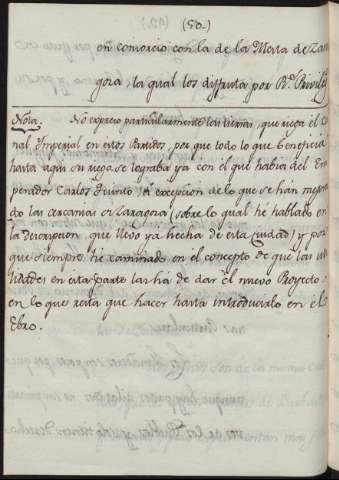 (50.)
en comorcio con la de la Mesta de Zara
goza, la qual los disfruta por Rl. Privilijo
Nota. No expreso particularmente las tierras, que riega el Ca
nal Imperial en estos Partidos, por que todo lo que beneficia
hasta aqui su riego se lograba ya con el que habia del Em
perador Carlos Quinto, á excepcion de lo que se han mejora
do las cercanias de Zaragoza, (sobre lo qual hé hablado en
la descripcion que llevo ya hecha de esta ciudad) y por
que siempre hé caminado en el concepto de que las uti
lidades en esta parte las há de dar el nuevo Proyecto:
en lo que resta que hacer hasta introducirlo en el
Ebro.